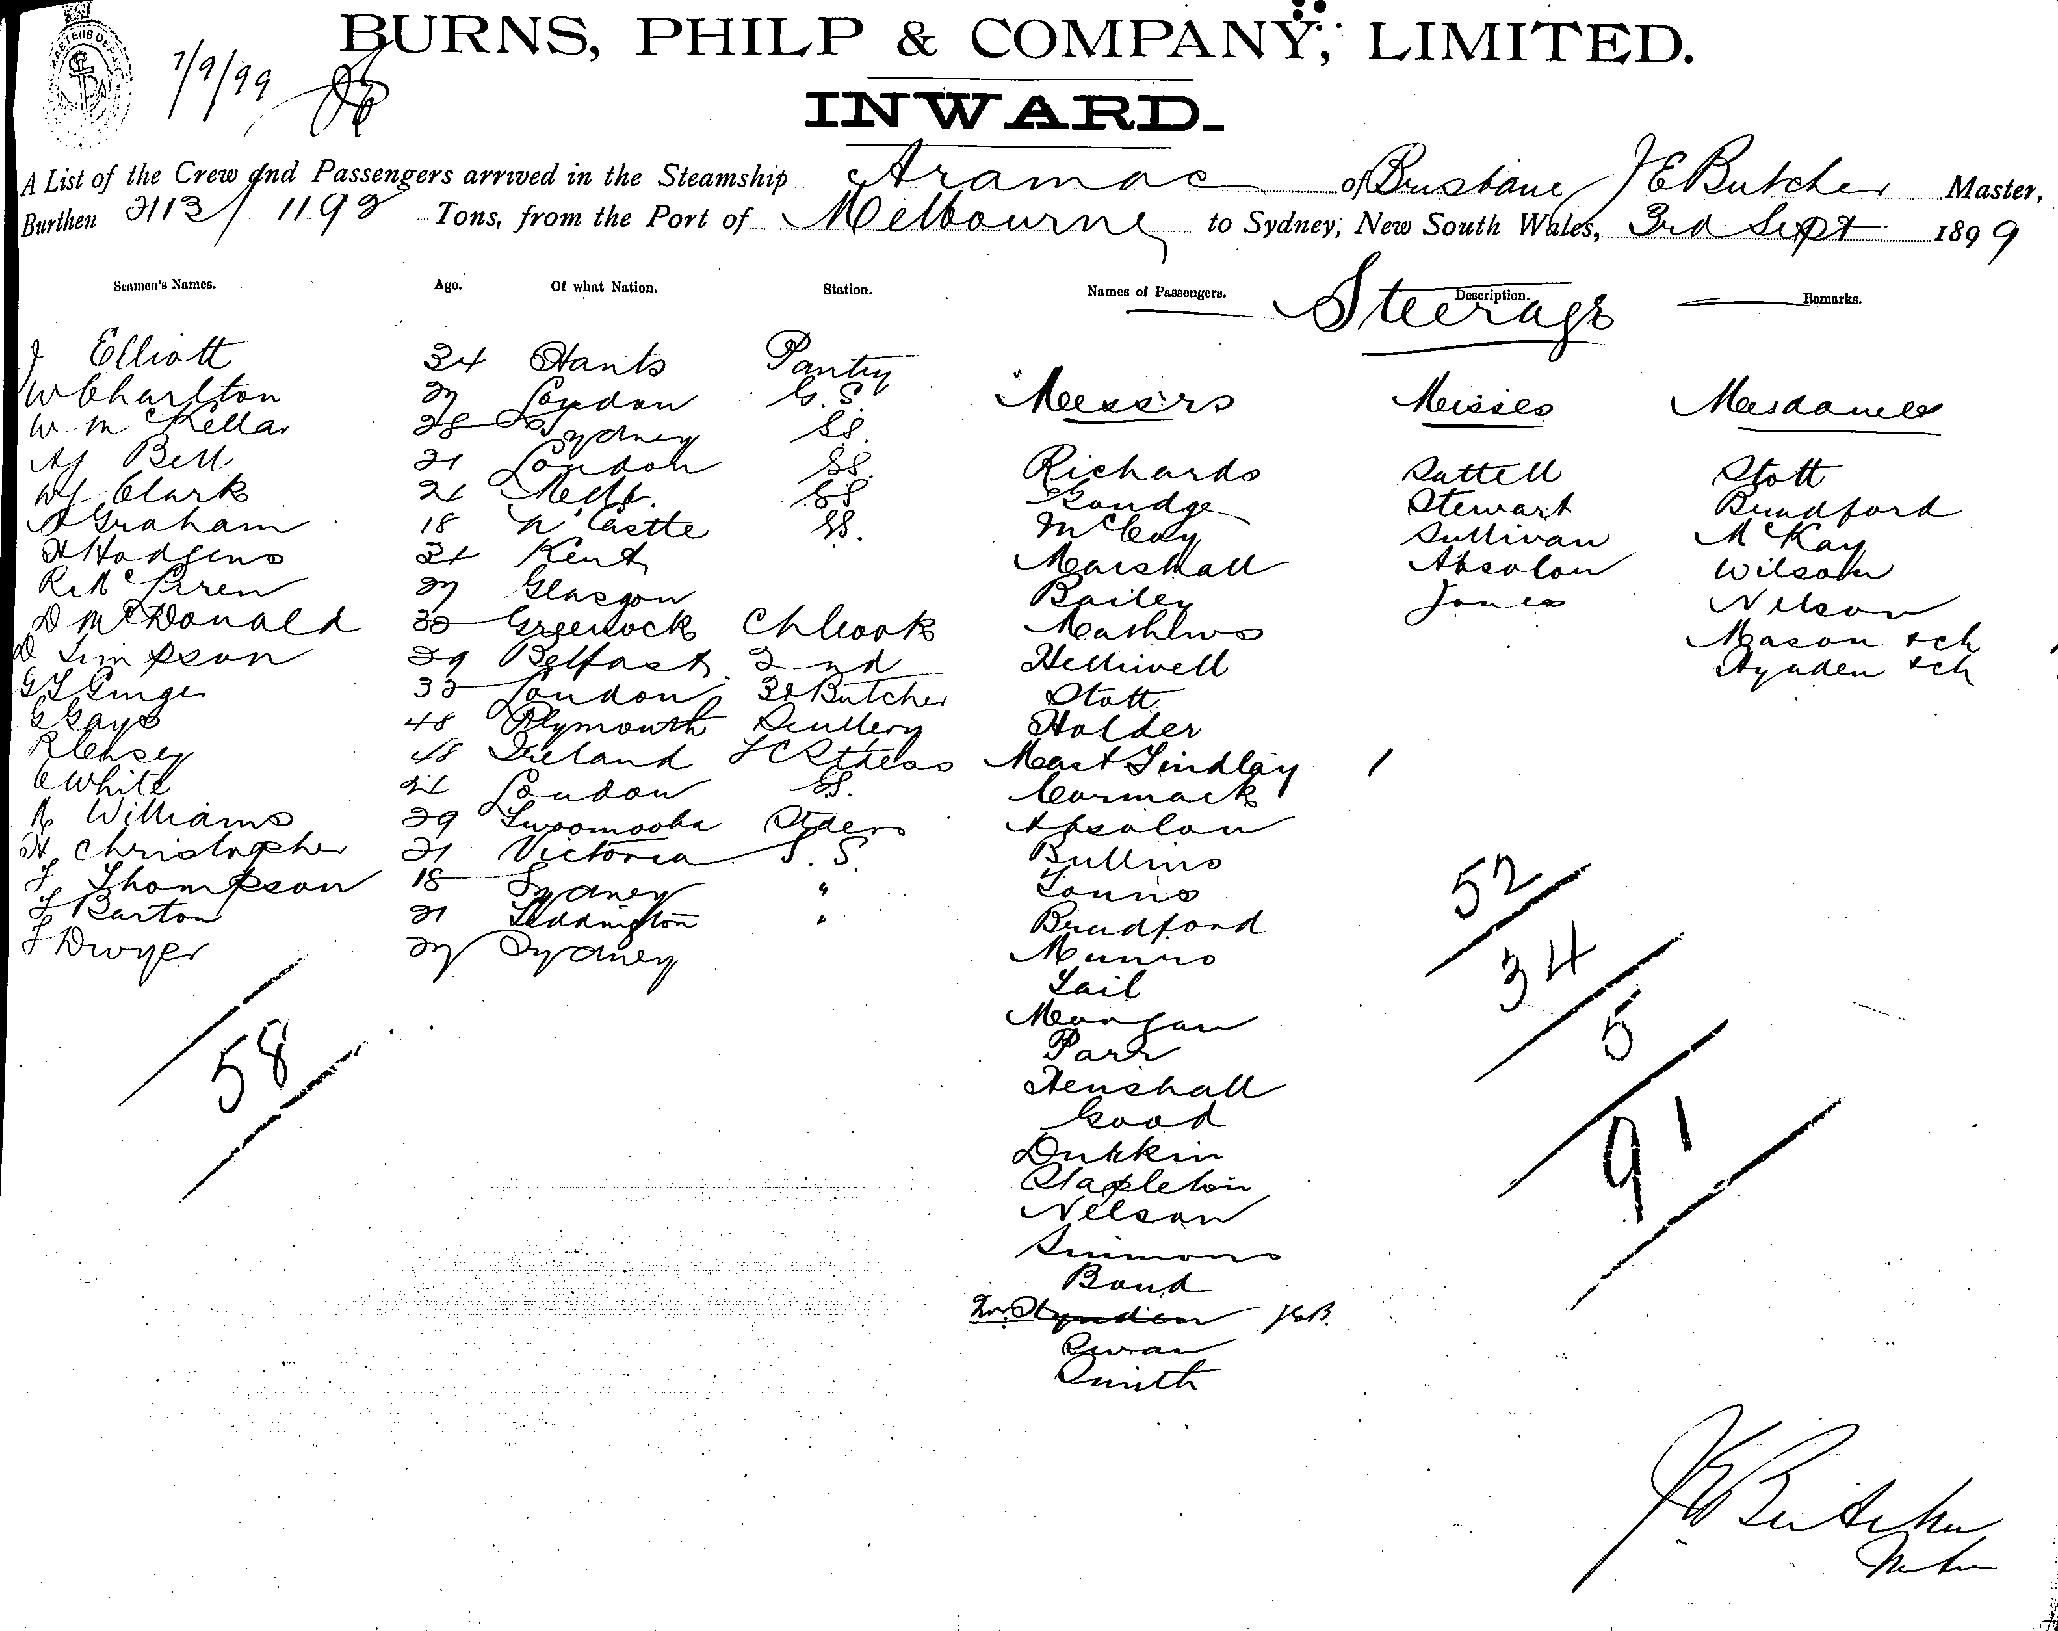 BURNS, PHILP & COMPANY, LIMITED.
7/9/99
INWARD.
A List of the Crew and Passengers arrived in the Steamship Aramac of Brisbane J E Butcher Master,
Burthen 2113/1192 Tons, from the Port of Melbourne to Sydney, New South Wales, 3rd Sept 1899
Seamen's Names. Age. Of what Nation. Station. Names of Passengers. Description. Remarks.
Steerage
J Elliott 34 Hants Pantry
W Charlton 27 London G.S.
W McKellar 28 Sydney SS.
A J Bell 21 London SS.
W J Clark 21 Melb. SS
A Graham 18 N'Castle SS.
H Hodgens 31 Kent
R Mc Laren 27 Glasgow
D McDonald 33 Greenock Ch Cook
D Simpson 29 Belfast 2nd
33 London 3d Butcher
G Gays 48 Plymouth Scullery
R Casey 48 Ireland F C Stdess
C White 21 London SS.
R Williams 29 Stders
H Christopher 21 Victoria S.S.
F Thompson 18 Sydney "
F Barton 21 Teddington "
F Dwyer 27 Sydney
58
Messrs Misses Mesdames
Richards Suttell Stott
Goudge Stewart Bradford
McCoy Sullivan McKay
Marshall Absolon Wilson
Bailey Jones Nelson
Mathews Mason & ch
Helliwell Hynden & ch
Stott
Holder
Mast Findlay 1
Cormack
Absolon
Bullins
Young
Bradford
Munro
Tail
Morgan
Parr
Henshall
Good
Durkin
Stapleton
Nelson
Simmons
Bond
J E B.
Swan
Smith
52
34
5
91
J E Butcher
Master